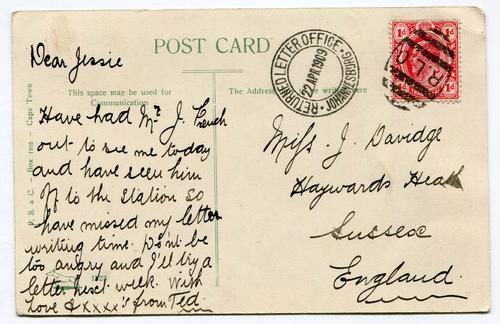 Dear Jessie
POST CARD
This space may be used for
Communication
The Address
written here
P. S. & C. - Box 1798 - Cape Town
Have had Mr. J. French
out to see me today
and have seen him
off to the Station so
have missed my letter
writing time. Don't be
too angry and I'll try a
letter next week. With
love & xxxx's from Ted.
RETURNED LETTER OFFICE
JOHANNESBURG
22 APR 1909
1d 1d
R.L.O
1d 1d
Miss J. Davidge
Haywards Heath
Sussex
England.